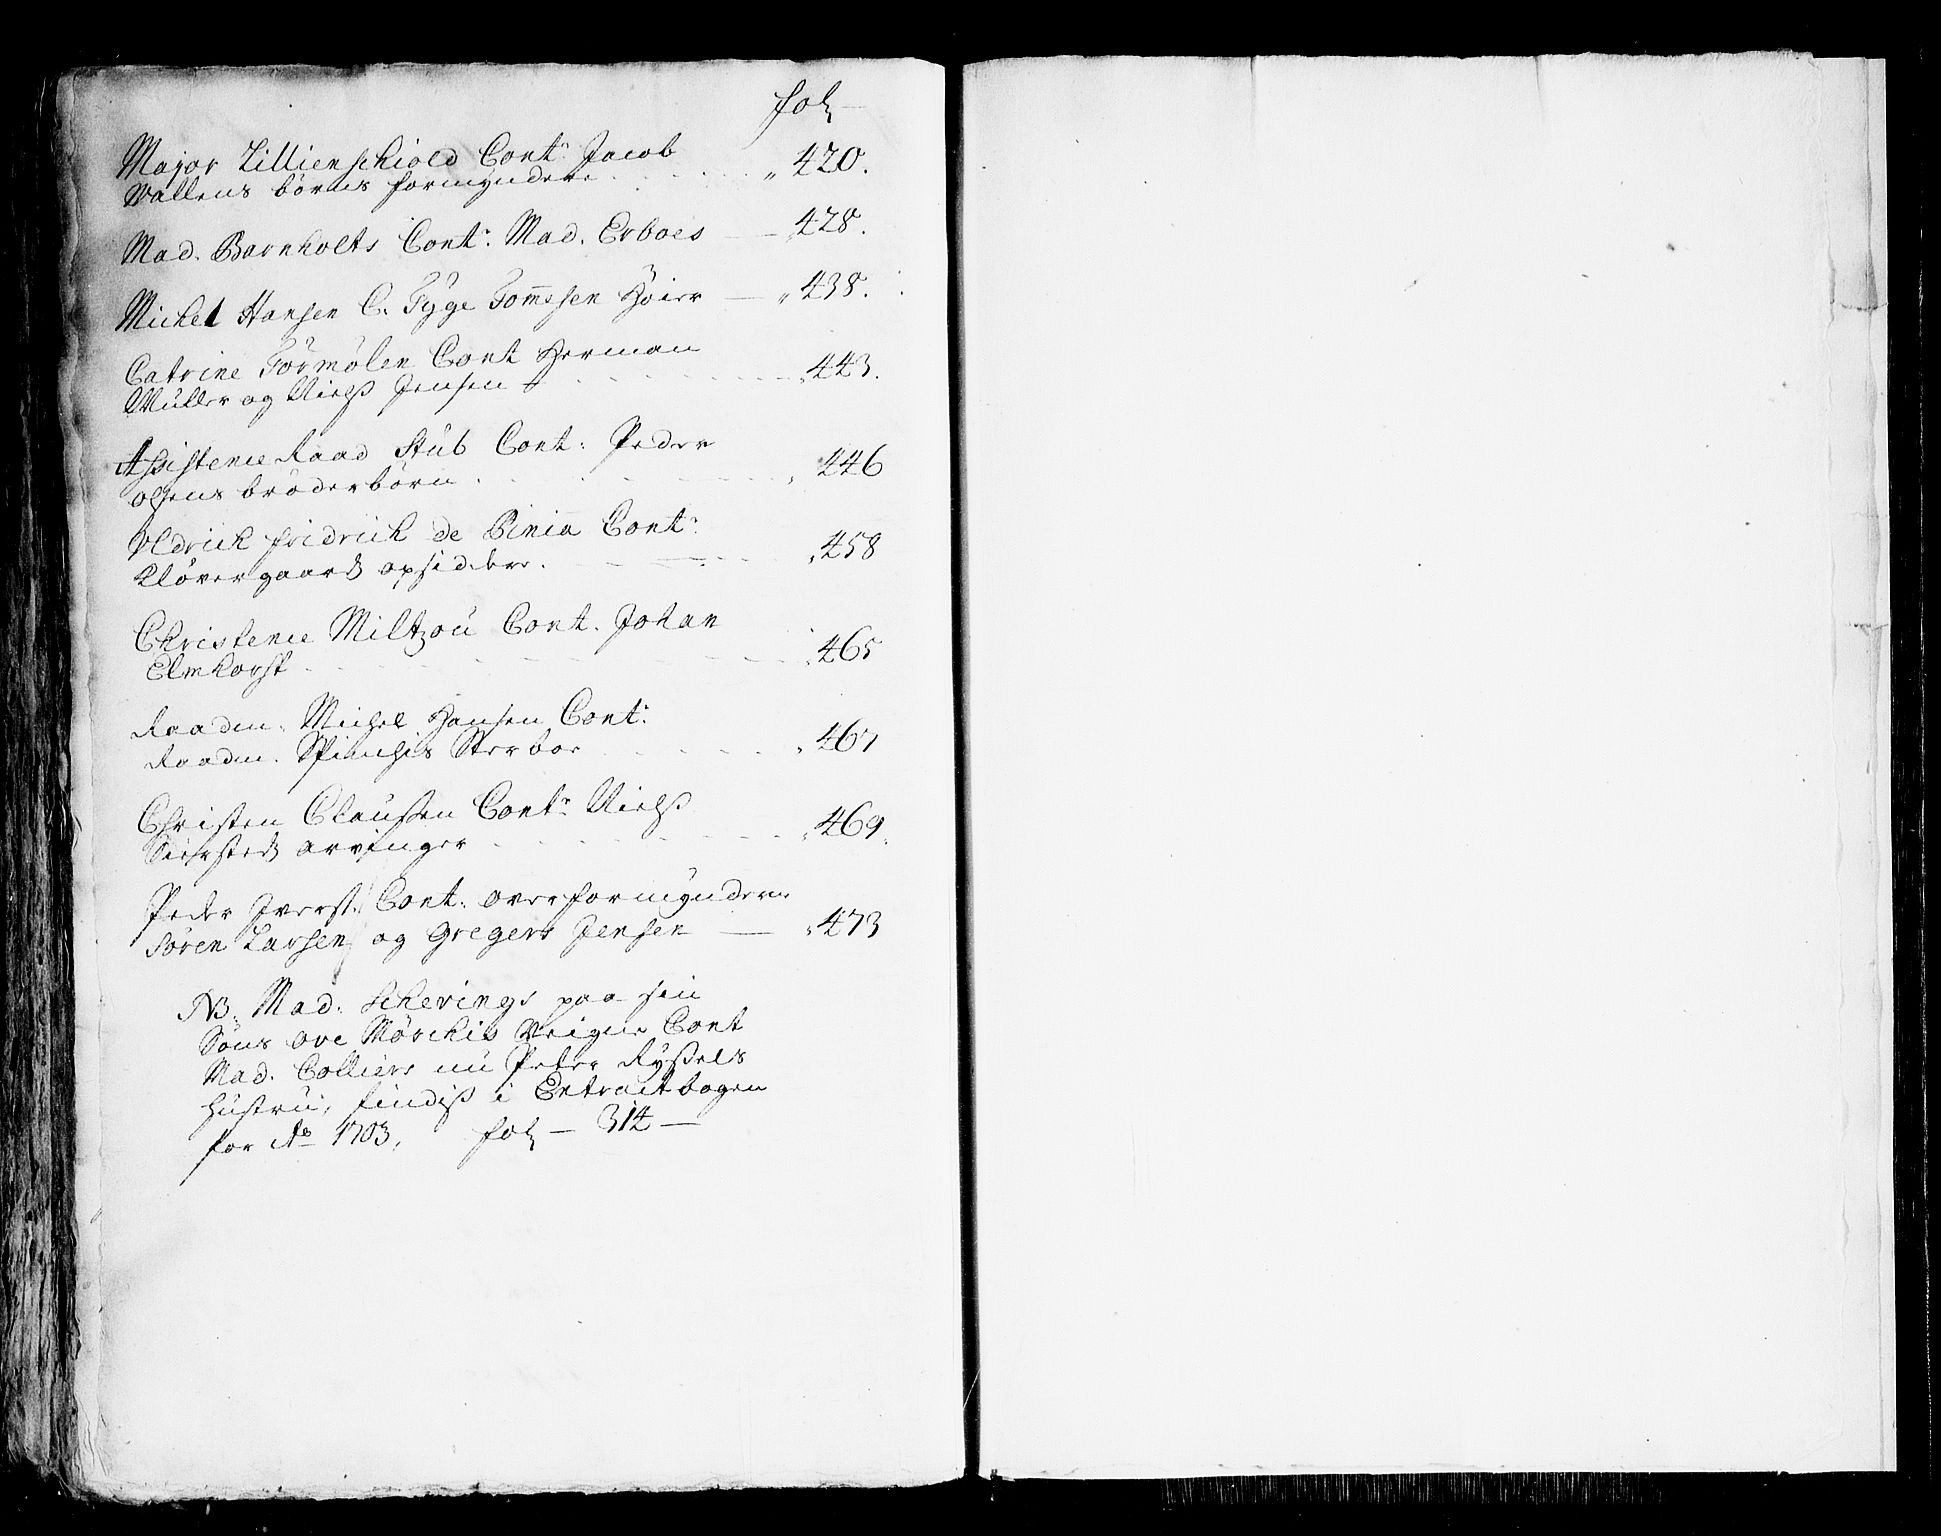 fol
Major Lillienschiold Contr. Jacob
Wallens börns formyndere 420.
Mad. Barnholts Contr. Mad. Erboes 428.
Michel Hansen C. Tyge Tomesen Høier 438.
Catrine Törmölen Cont Herman
Müller og Nielß Jensen 443.
Assistence Raad Stub Cont: Peder
olsens bröderbörn 446
Vldrich fridrich de Cont:
Klöver gaards opsiddere. 458
Christence Miltzou Cont. Johan
Elmhorst 465
Raadm. Michel Hansen Cont:
Raadm. Sterboe 467
Christen Claussen Contr. Nielß
arvinger 469.
Peder Iverss. Cont: overformyndere
Sören Larsen og Gregers Jensen 473
NB. Mad. Scherings paa sin
Söns ove Mörchis Veigne Cont
Mad. Colliers nu Peter Ryssels
Hustru, findiß i Extract bogen
for Ao 1703, fol 314